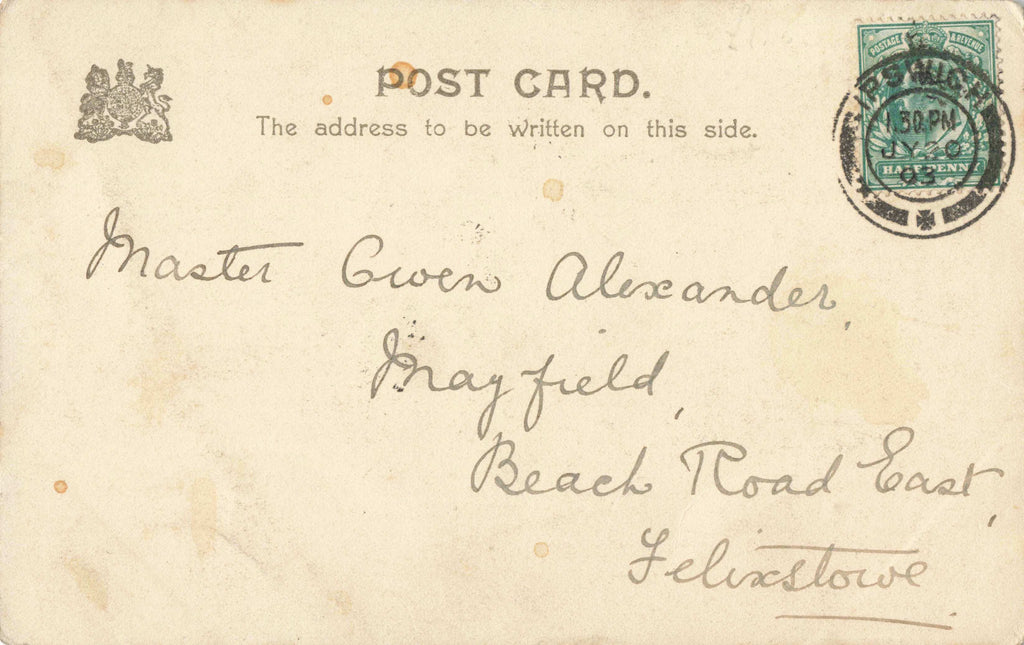 POST CARD.
The address to be written on this side.
POSTAGE & REVENUE
IPSWICH
1.30.PM
JY 20
03
HALFPENNY
Master Owen Alexander,
Mayfield,
Beach Road East,
Felixstowe